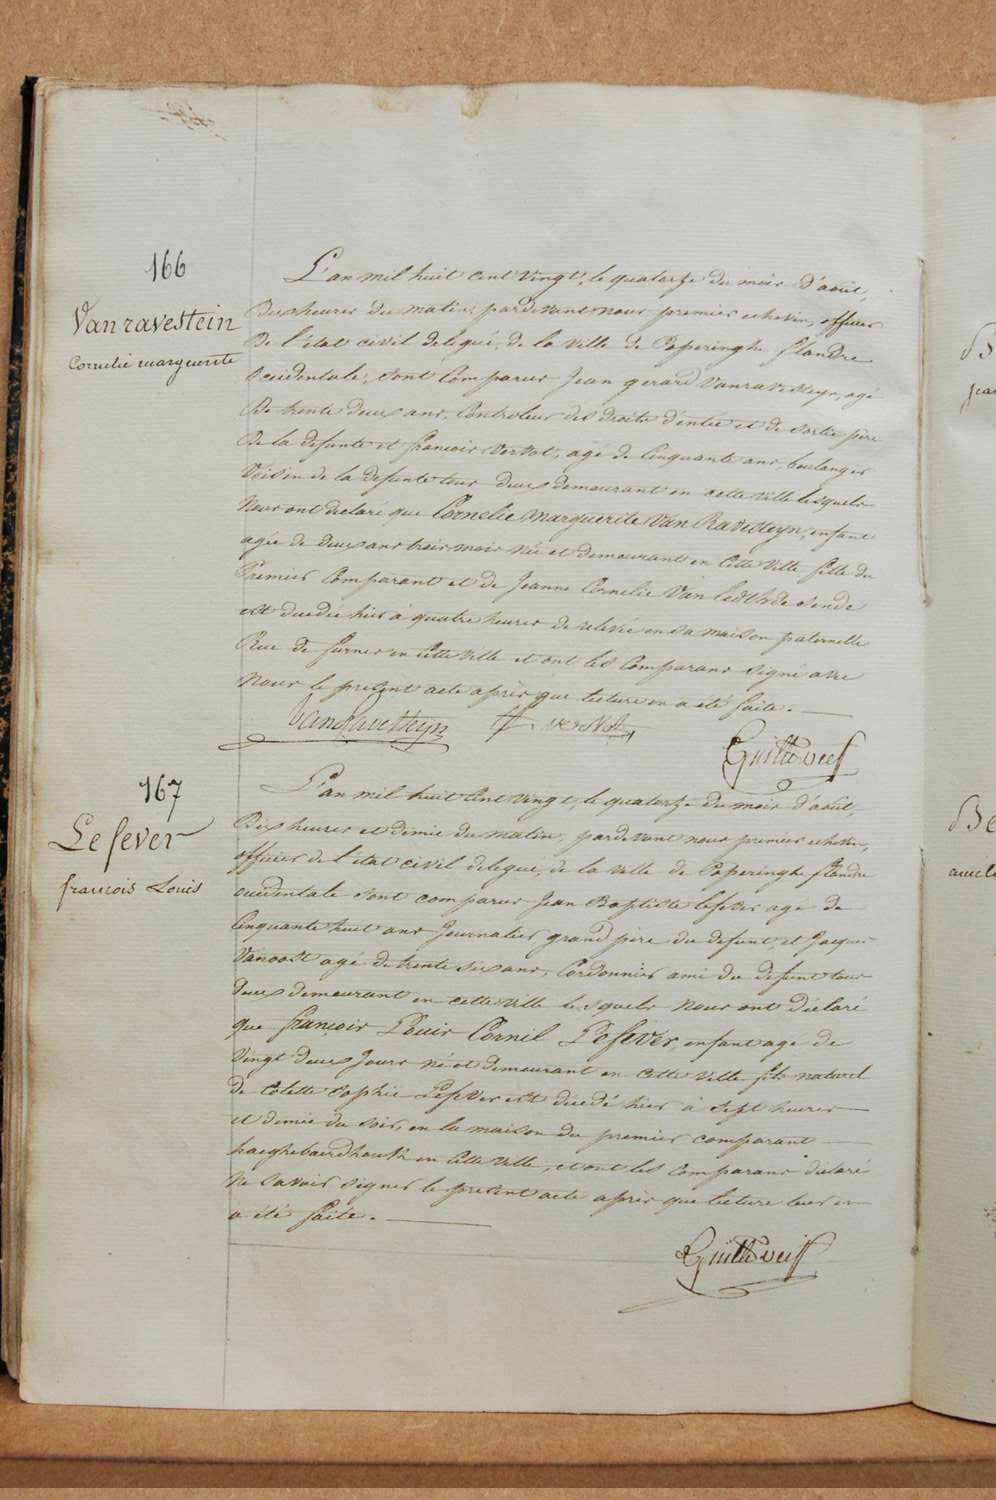 166
Vanravestein
Cornelie marguerite
L'an mil huit cent vingt, le quatorze du mois d'août,
Dix heures du matin, pardevant nous premier echevin, officier
De l'état civil delegué, de la ville de Poperinghe flandre
Occidentale, sont Comparus Jean gerard Vanravesteyn, agé
De trente deux ans, Controleur des droits d'entrée et de sortie père
De la defunte et francois Vernot, agé de Cinquante ans, boulanger
Voisin de la defunte tous deux demeurant en cette ville lesquels
Nous ont declaré que Cornelie Marguerite Van Ravesteyn, enfant
agée de deux ans trois mois née et demeurant en Cette Ville fille du
Premier Comparant et de Jeanne Cornelie Van
est decedée hier à quatre heures de relevée en sa maison paternelle
Rue de furnes en Cette Ville et ont les Comparans signé avec
Nous le present acte après que lecture en a été faite.
VanRavesteyn
Guille
167
Lefever
francois Louis
L'an mil huit Cent vingt, le quatorze du mois d'août,
Dix heures et demie du matin, pardevant nous premier echevin,
officier de l'état civil delegué, de la ville de Poperinghe flandre
occidentale sont comparus Jean Baptiste Lefever agé de
Cinquante huit ans Journalier grand père du defunt, et Jacques
Vanoost agé de trente six ans, Cordonnier ami du defunt tous
Deux demeurant en cette ville lesquels Nous ont déclaré
que francois Louis Cornil Lefever, enfant agé de
Vingt deux Jours né et demeurant en Cette Ville fils naturel
de Colette Sophie Lefever est decedé hier à sept heures
et demie du soir, en la maison du premier comparant
en Cette Ville, et ont les Comparans declaré
Ne savoir signer le present acte après que lecture leur en
a été faite.
Guille